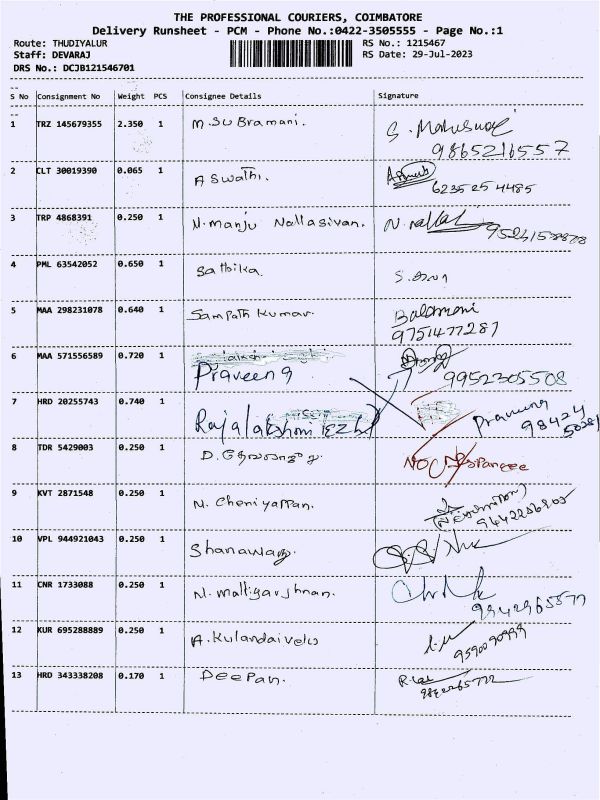 THE PROFESSIONAL COURIERS, COIMBATORE
Delivery Runsheet - PCM - Phone No.:0422-3505555 - Page No.:1
Route: THUDIYALUR RS No.: 1215467
Staff: DEVARAJ RS Date: 29-Jul-2023
DRS No.: DCJB121546701
S No Consignment No Weight PCS Consignee Details Signature
1 TRZ 145679355 2.350 1 M.SUBramani.
9865216557
2 CLT 30019390 0.065 1 ASwathi.
6235254485
3 TRP 4868391 0.250 1 N.manju Nallasivan.
4 PML 63542052 0.650 1 Sathika
5 MAA 298231078 0.640 1 Sampath Kumar. Balamani
9751477281
6 MAA 571556589 0.720 1 Praveen G
9952305508
7 HRD 20255743 0.740 1 Rajalakshmi
98424
8 TDR 5429003 0.250 1 D.
9 KVT 2871548 0.250 1 N. Cheniyappan.
10 VPL 944921043 0.250 1 Shanawaz.
11 CNR 1733088 0.250 1
12 KUR 695288889 0.250 1 A.Kulandaivelu
9590090999
13 HRD 343338208 0.170 1 Deepan.